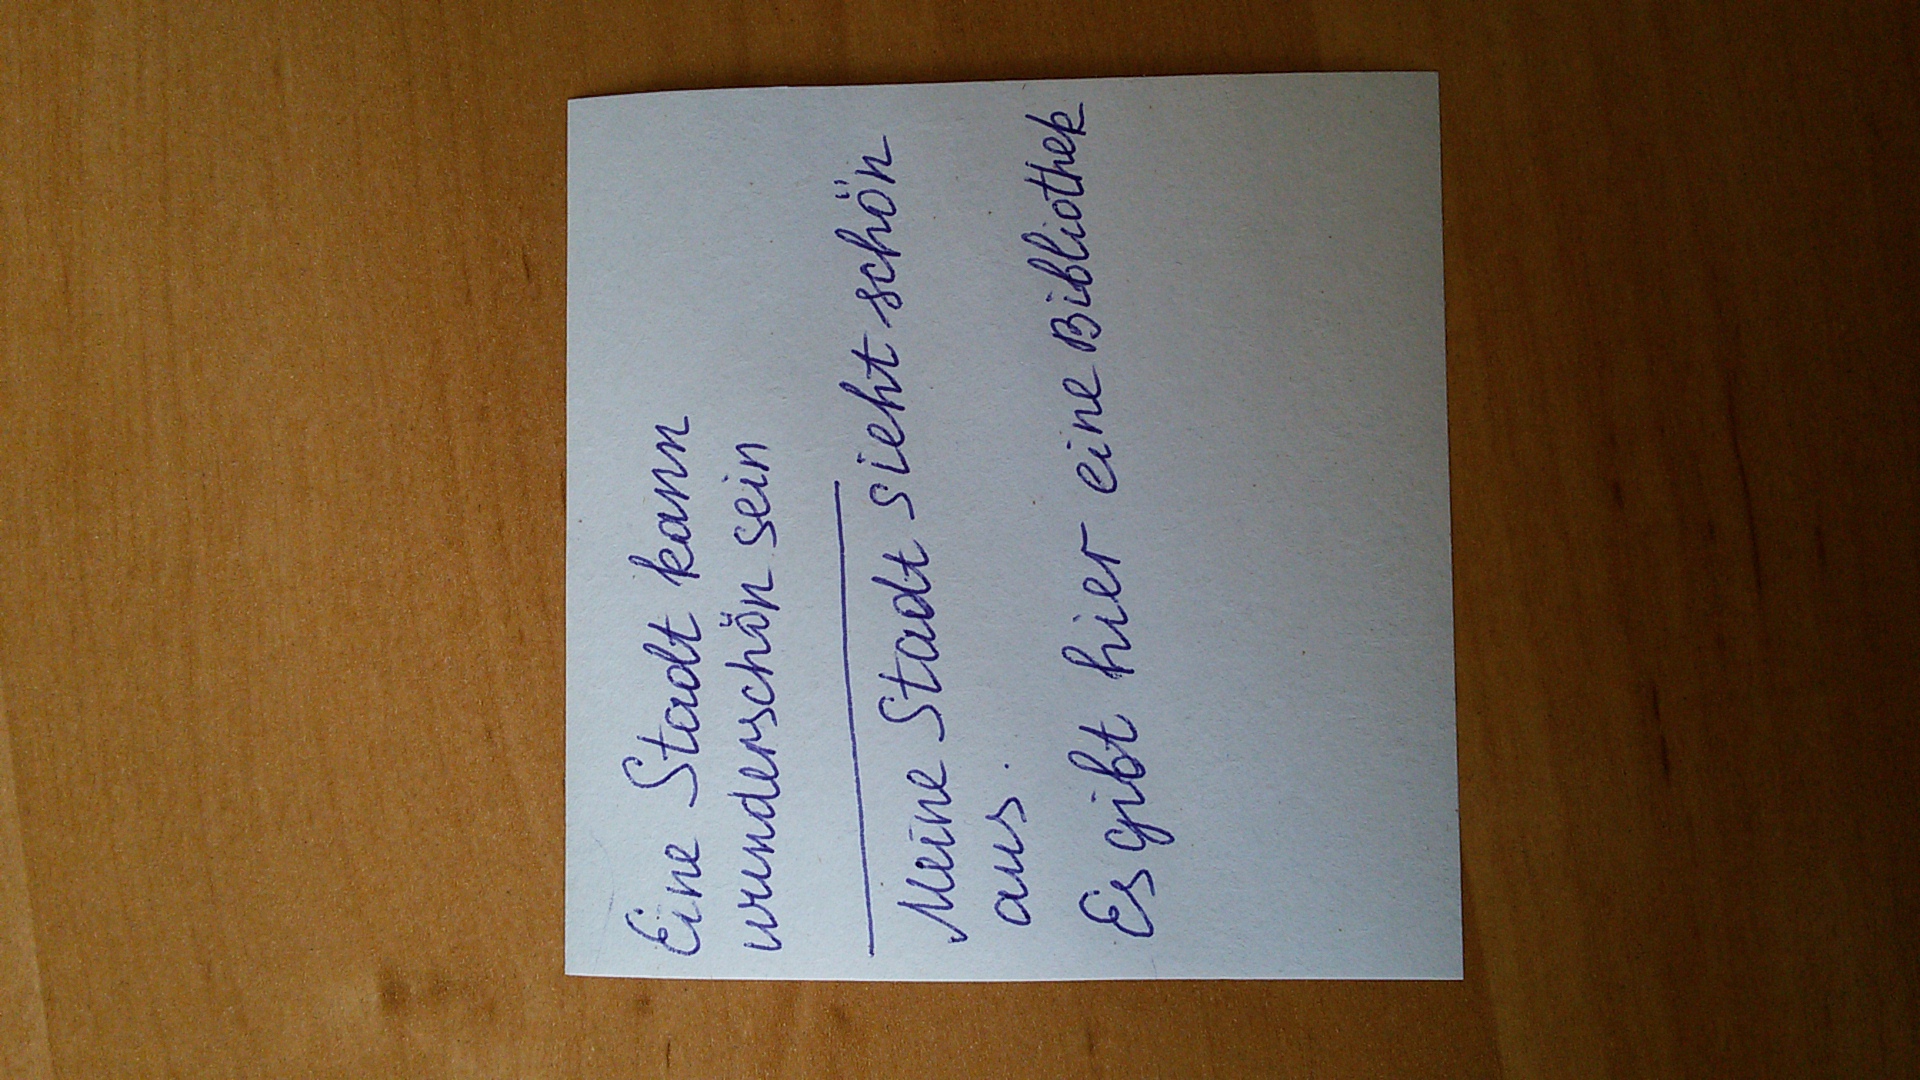 Eine Stadt kann
wunderschön sein
Meine Stadt sieht schön
aus.
Es gibt hier eine Bibliothek